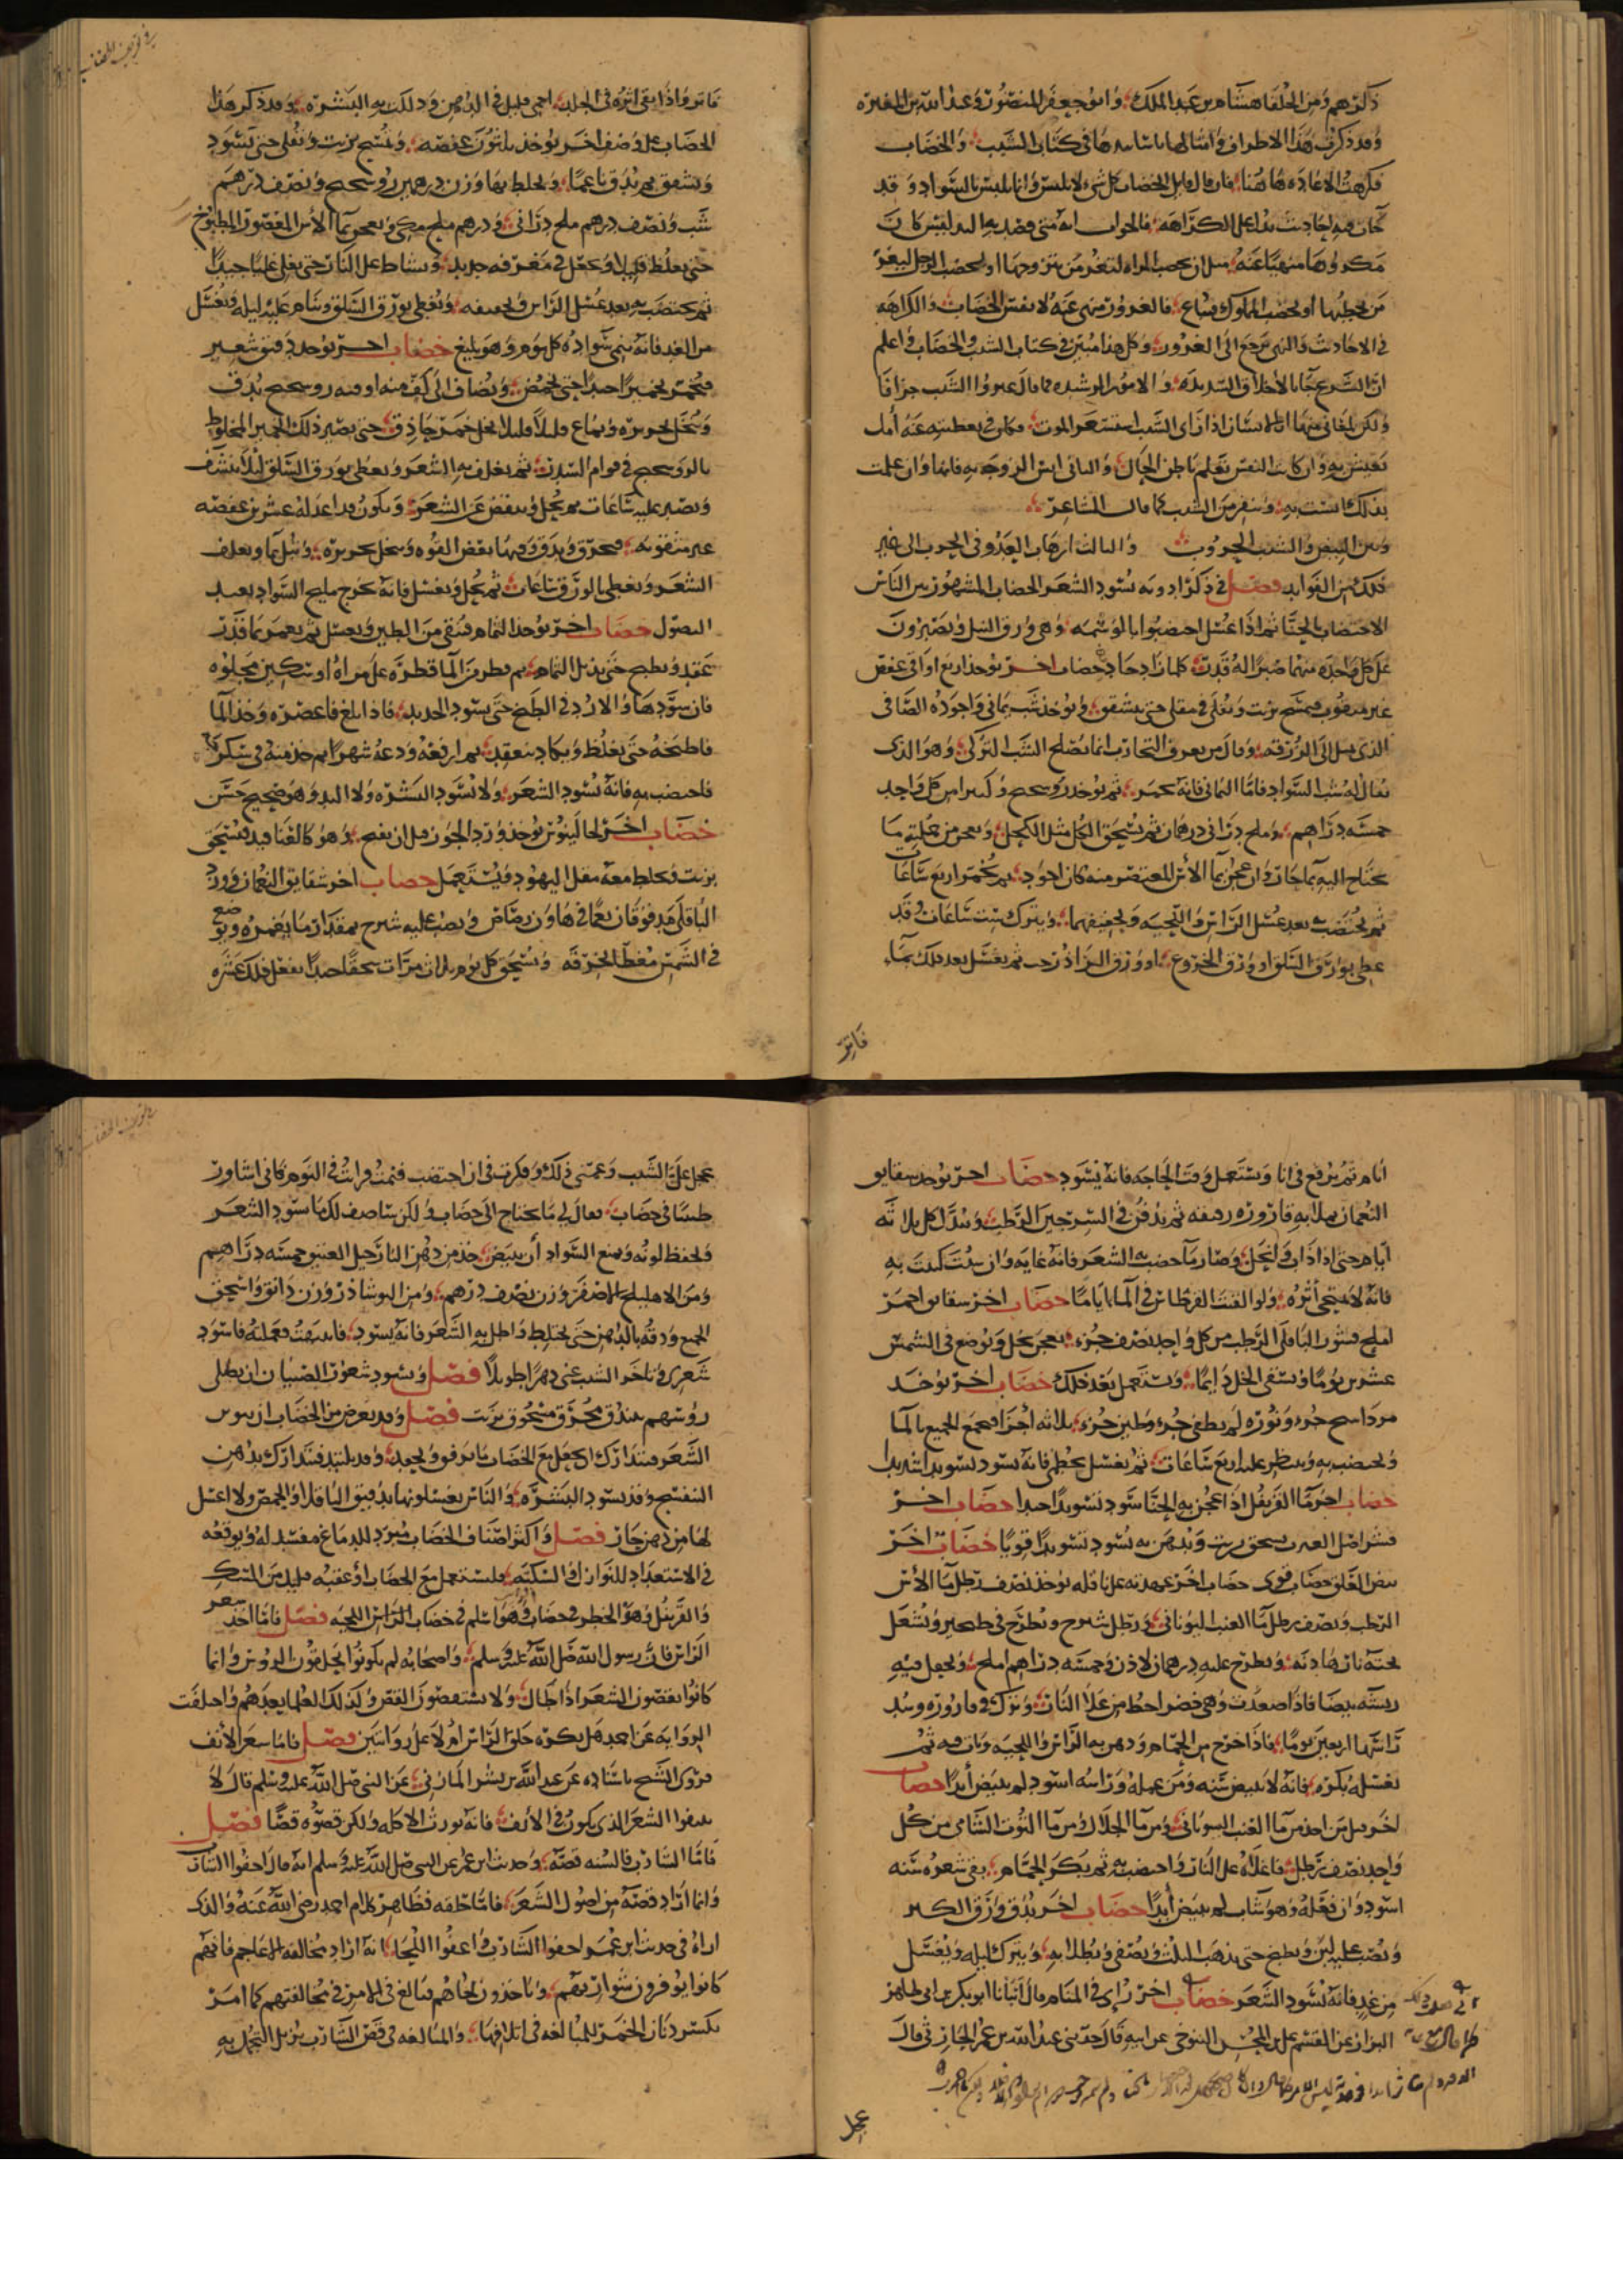 ذكرتهم ومن الخلفا هشام بن عبد الملك وابو جعفر المنصور وعبد الله بن المعتز
وقد ذكرت هذا الاطراف وامثالها باسانيدها في كتاب الشيب والخضاب
فكرهت الاعاده هاهنا فان قال قايل الخضاب كل شي لا يلبس وانما يلبس بالسواد وقد
جات فيه احاديث تدل على الكراهه فالجواب انه متى قصد به التدليس كان
مكروها منهيا عنه مثل ان تخضب المراه لتغر من يتزوجها او يخضب الرجل ليغر
من يخطبها او يخضب المملوك فيباع فالغرور منهي عنه لا نفس الخضاب والكراهه
في الاحاديث والنهي ترجع الى الغرور وكل هذا مبين في كتاب الشيب والخضاب واعلم
ان الشرع جا بالاخلاق السديده والامور الرشيده فما قال غيروا الشيب جزافا
ولكن لمعاني منها ان الانسان اذا راى الشيب استشعر الموت فكان في تغطيته عنه أمل
تعيش به وان كانت النفس تعلم باطن الحال والثاني انس الزوجه به فانها وان علمت
بذلك تانست به وتنفر من الشيب كما قال الشاعر
وبين البيض والشيب الحروب والثالث ارهاب العدو في الحرب الى غير
ذلك من الفوايد فصل في ذكر ادويه تسود الشعر الخضاب المشهور بين الناس
الاختضاب بالحنا ثم اذا غسل اختضبوا بالوشمه وهي ورق النيل ويصبرون
على كل واحده منهما صبرا له قدر كلما زاد جاد خضاب اخر يوخذ اربع اواقي عفص
غير مثقوب فيمسح بزيت ويقلى في مقلى حتى يتشقق ويوخذ شب يماني واجوده الصافي
الذي يميل الى الزرقه وقال من يعرف التجارب انما يصلح الشب التركي وهو الذي
يقال له شب السواد فاما اليماني فانه يحمر ثم يوخذ روسختج وكثيرا من كل واحد
خمسه دراهم وملح دراني درهمان ثم يسحق الكل مثل الكحل ويعجن من عليته ما
يحتاج اليه بما حار وان عجن بما الاس المعتصر منه كان اجود ثم يخمر اربع ساعات
ثم يختضب به بعد غسل الراس واللحيه وتجفيفهما ويترك ست ساعات وقد
غطي بورق السلق او ورق الخروع او ورق الزادرخت ثم يغسل بعد ذلك بماء
فاتر
فاتر واذا بقي اثره في الجلد احمي قليل في الدهن ودلكت به البشره وقد ذكر هذا
الخضاب على وصف اخر يوخذ ثلثون عفصه وتمسح بزيت وتقلى حتى تسود
وتشقق ثم تدق ناعما ويخلط بها وزن درهمين روسختج ونصف درهم
شب ونصف درهم ملح دراني ودرهم ملح مكي ويعجن بما الاس المعصور المطبوخ
حتى يغلظ قليلا ويجعل في مغرفه حديد ويساط على النار حتى يغلي غليا جيدا
ثم يختضب به بعد غسل الراس وتجفيفه ويغطى بورق السلق وينام عليه ليله ويغسل
من الغد فانه ينمي سواده كل يوم وهو بليغ خضاب اخر يوخذ دقيق شعير
فيخمر تخميرا جيدا حتى يحمض ويضاف الى كف منه اوقيه روسختج يدق
وينخل بحريره ويماع قليلا قليلا بخل خمر حاذق حتى يصير ذلك الخمير المخلوط
بالروسختج في قوام السدر ثم يغلف به الشعر ويغطى بورق السلق ليلا ينشف
ويصبر عليه ساعات ثم يحل وينفض عن الشعر ويكون قد اعد له عشرين عفصه
غير مثقوبه فتحرق وتدق وفيها بعض القوه وتنخل بحريره وتبل بما ويعلف
الشعر ويغطى بالورق ساعات ثم يحل ويغسل فانه يخرج مليح السواد بعيد
النصول خضاب اخر يوخذ الثمام فينقى من الطين ويغسل ثم يغمر بما قدر
عقد ويطبخ حتى يذبل الثمام ثم يقطر من الما قطره على مراة او سكين مجلوه
فان سودها والا زد في الطبخ حتى يسود الحديد فاذا بلغ فاعصره وخذ الما
فاطبخه حتى يغلظ ويكاد ينعقد ثم ارفعه ودعه شهرا ثم خذ منه في سكر
فاخضب به فانه يسود الشعر ولا يسود البشره ولا اليد وهو صحيح حسن
خضاب اخر لجالينوس يوخذ ورد الجوز قبل ان يفتح وهو كالقنا قد فيسحق
بزيت ويخلط معه مقل اليهود ويستعمل خضاب اخر شقايق النعمان وورد
الباقلى يدفوقان نعما في هاون رصاص ويصب عليه شيرج بمقدار ما يغمره ويوضع
في الشمس مغطا بخرقه ويسحق كل يوم ثلاث مرات سحقا جيدا يفعل ذلك عشره
ايام ثم يرفع في انا ويستعمل وقت الحاجه فانه يسود خضاب اخر يوخذ شقايق
النعمان يملا به قاروره رقيقه ثم يدفن في السرجين الرطب ويبدل كل ثلاثه
ايام حتى اذا ذاب وانحل وصار ما خضب به الشعر فانه غايه وان شئت كتبت به
فانه لا يمتحي أثره ولو القيت القرطاس في الما اياما خضاب اخر شقايق احمر
املج قشور الباقلى الرطب من كل واحد نصف جزء يعجن بخل ويوضع في الشمس
عشرين يوما ويسقى الخل دايما ويستعمل بعد ذلك خضاب اخر يوخذ
مرداسنج جزء ونوره لم تطفى جزء وطين جزء ثلاثه اجزا فيجمع الجميع بالما
ويختضب به وينتظر عليه اربع ساعات ثم يغسل بخطمي فانه يسود تسويدا شديدا
خضاب اخر ما القرنفل اذا عجن به الحنا سود تسويدا جيدا خضاب اخر
قشر اصل العنب يسحق بزيت ويدهن به يسود تسويدا قويا خضاب اخر
بيض اللقلق خضاب قوي خضاب اخر يوخذ نصف رطل ما الاس
الرطب ونصف رطل ما العنب اليوناني ورطل شيرج ويطرح في طنجير ويشعل
تحته نار هادئه ويطرح عليه درهمان لاذن وخمسه دراهم املج ويجعل فيه
ريشه بيضا فاذا صعدت وهي خضرا حط من على النار ويترك في قاروره ويشد
راسها اربعين يوما فاذا خرج من الحمام ودهن به الراس واللحيه وبات فيه ثم
يغسله بكره فانه لا يبيض شيبه ومن عمله وراسه اسود لم يبيض أبدا خضاب
اخر قيل من اخذ من ما العنب اليوناني ومن ما الجلال ومن ما التوت الشامي من كل
واحد نصف رطل فاغلاه على النار واختضب به ثم يكر الحمام بقي شعره سنه
اسود وان فعله وهو شاب لم يبيض أبدا خضاب اخر يدق ورق الكبر
ويصب عليه لبن ويطبخ حتى يذهب الثلث ويصفى ويطلا به ويترك ليله ويغسل
من غد فانه يسود الشعر خضاب اخر راي في المنام قال انبأنا ابو بكر بن ابي طاهر
البزاز عن القسم علي بن المحسن التنوخي عن ابيه قال حدثني عبد الله بن عمر الحارثي قال
عجل
عجل علي الشيب وغمني ذلك وفكرت في ان اختضب فنمت فرايت في النوم كاني اشاور
طبيبا في خضاب فقال لي ما تحتاج الى خضاب ولكن ساصف لك ما سود الشعر
ويحفظ لونه ويمنع السواد أن يبيض خذ من دهن النارجيل العتيق خمسه دراهم
ومن الاهليلج الاصفر وزن نصف درهم ومن النوشاذر وزن دانق واسحق
الجميع ودفه بالدهن حتى يختلط واطل به الشعر فانه يسود فانتبهت فعملته فاسود
شعري وتاخر الشيب عني دهرا طويلا فصل ويسود شعور الصبيان ان يطلى
روسهم ببندق محرق مسحوق بزيت فصل وقد يعرض من الخضاب ان يبوس
الشعر فيتدارك ان يجعل مع الخضاب ما يرفق ويجعد وقد يتلبد فيتدارك بدهن
البنفسج وقد يسود البشره والناس يغسلونها بدقيق الباقلا والحمص ولا اغسل
لها من دهن حار فصل واكثر اصناف الخضاب مبرد للدماغ مفسد له ويوقعه
في الاستعداد للنوازل والسكته فليستعمل مع الخضاب او عقبه قليل من المسك
والقرنفل وهو الخطر في خضاب وهو اسلم في خضاب الراس اللحيه فصل فاما اخذ شعر
الراس فان رسول الله صلى الله عليه وسلم واصحابه لم يكونوا يحلقون الروس وانما
كانوا يقصون الشعر اذا طال ولا يستقصون القص وكذلك العلما بعدهم واختلفت
الروايه عن احمد هل يكره حلق الراس ام لا على روايتين فصل فاما شعر الأنف
فروى الشيخ باسناده عن عبد الله بن بشر المازني عن النبي صلى الله عليه وسلم قال لا
تنتفوا الشعر الذي يكون في الأنف فانه يورث الاكله ولكن قصوه قصا فصل
فاما الشارب فالسنه قصه وحديث ابن عمر عن النبي صلى الله عليه وسلم انه قال احفوا الشارب
وانما اراد قصه من اصول الشعر فاما حلقه فظاهر كلام احمد رضي الله عنه والذي
اراه في حديث ابن عمر احفوا الشارب واعفوا اللحيا انه اراد مخالفه الاعاجم فانهم
كانوا يوفرون شواربهم وياخذون لحاهم فبالغ في الامر في مخالفتهم كما امر
بكسر دنان الخمر للمبالغه في اتلافها والمبالغه في قص الشارب يزيل التجمل به